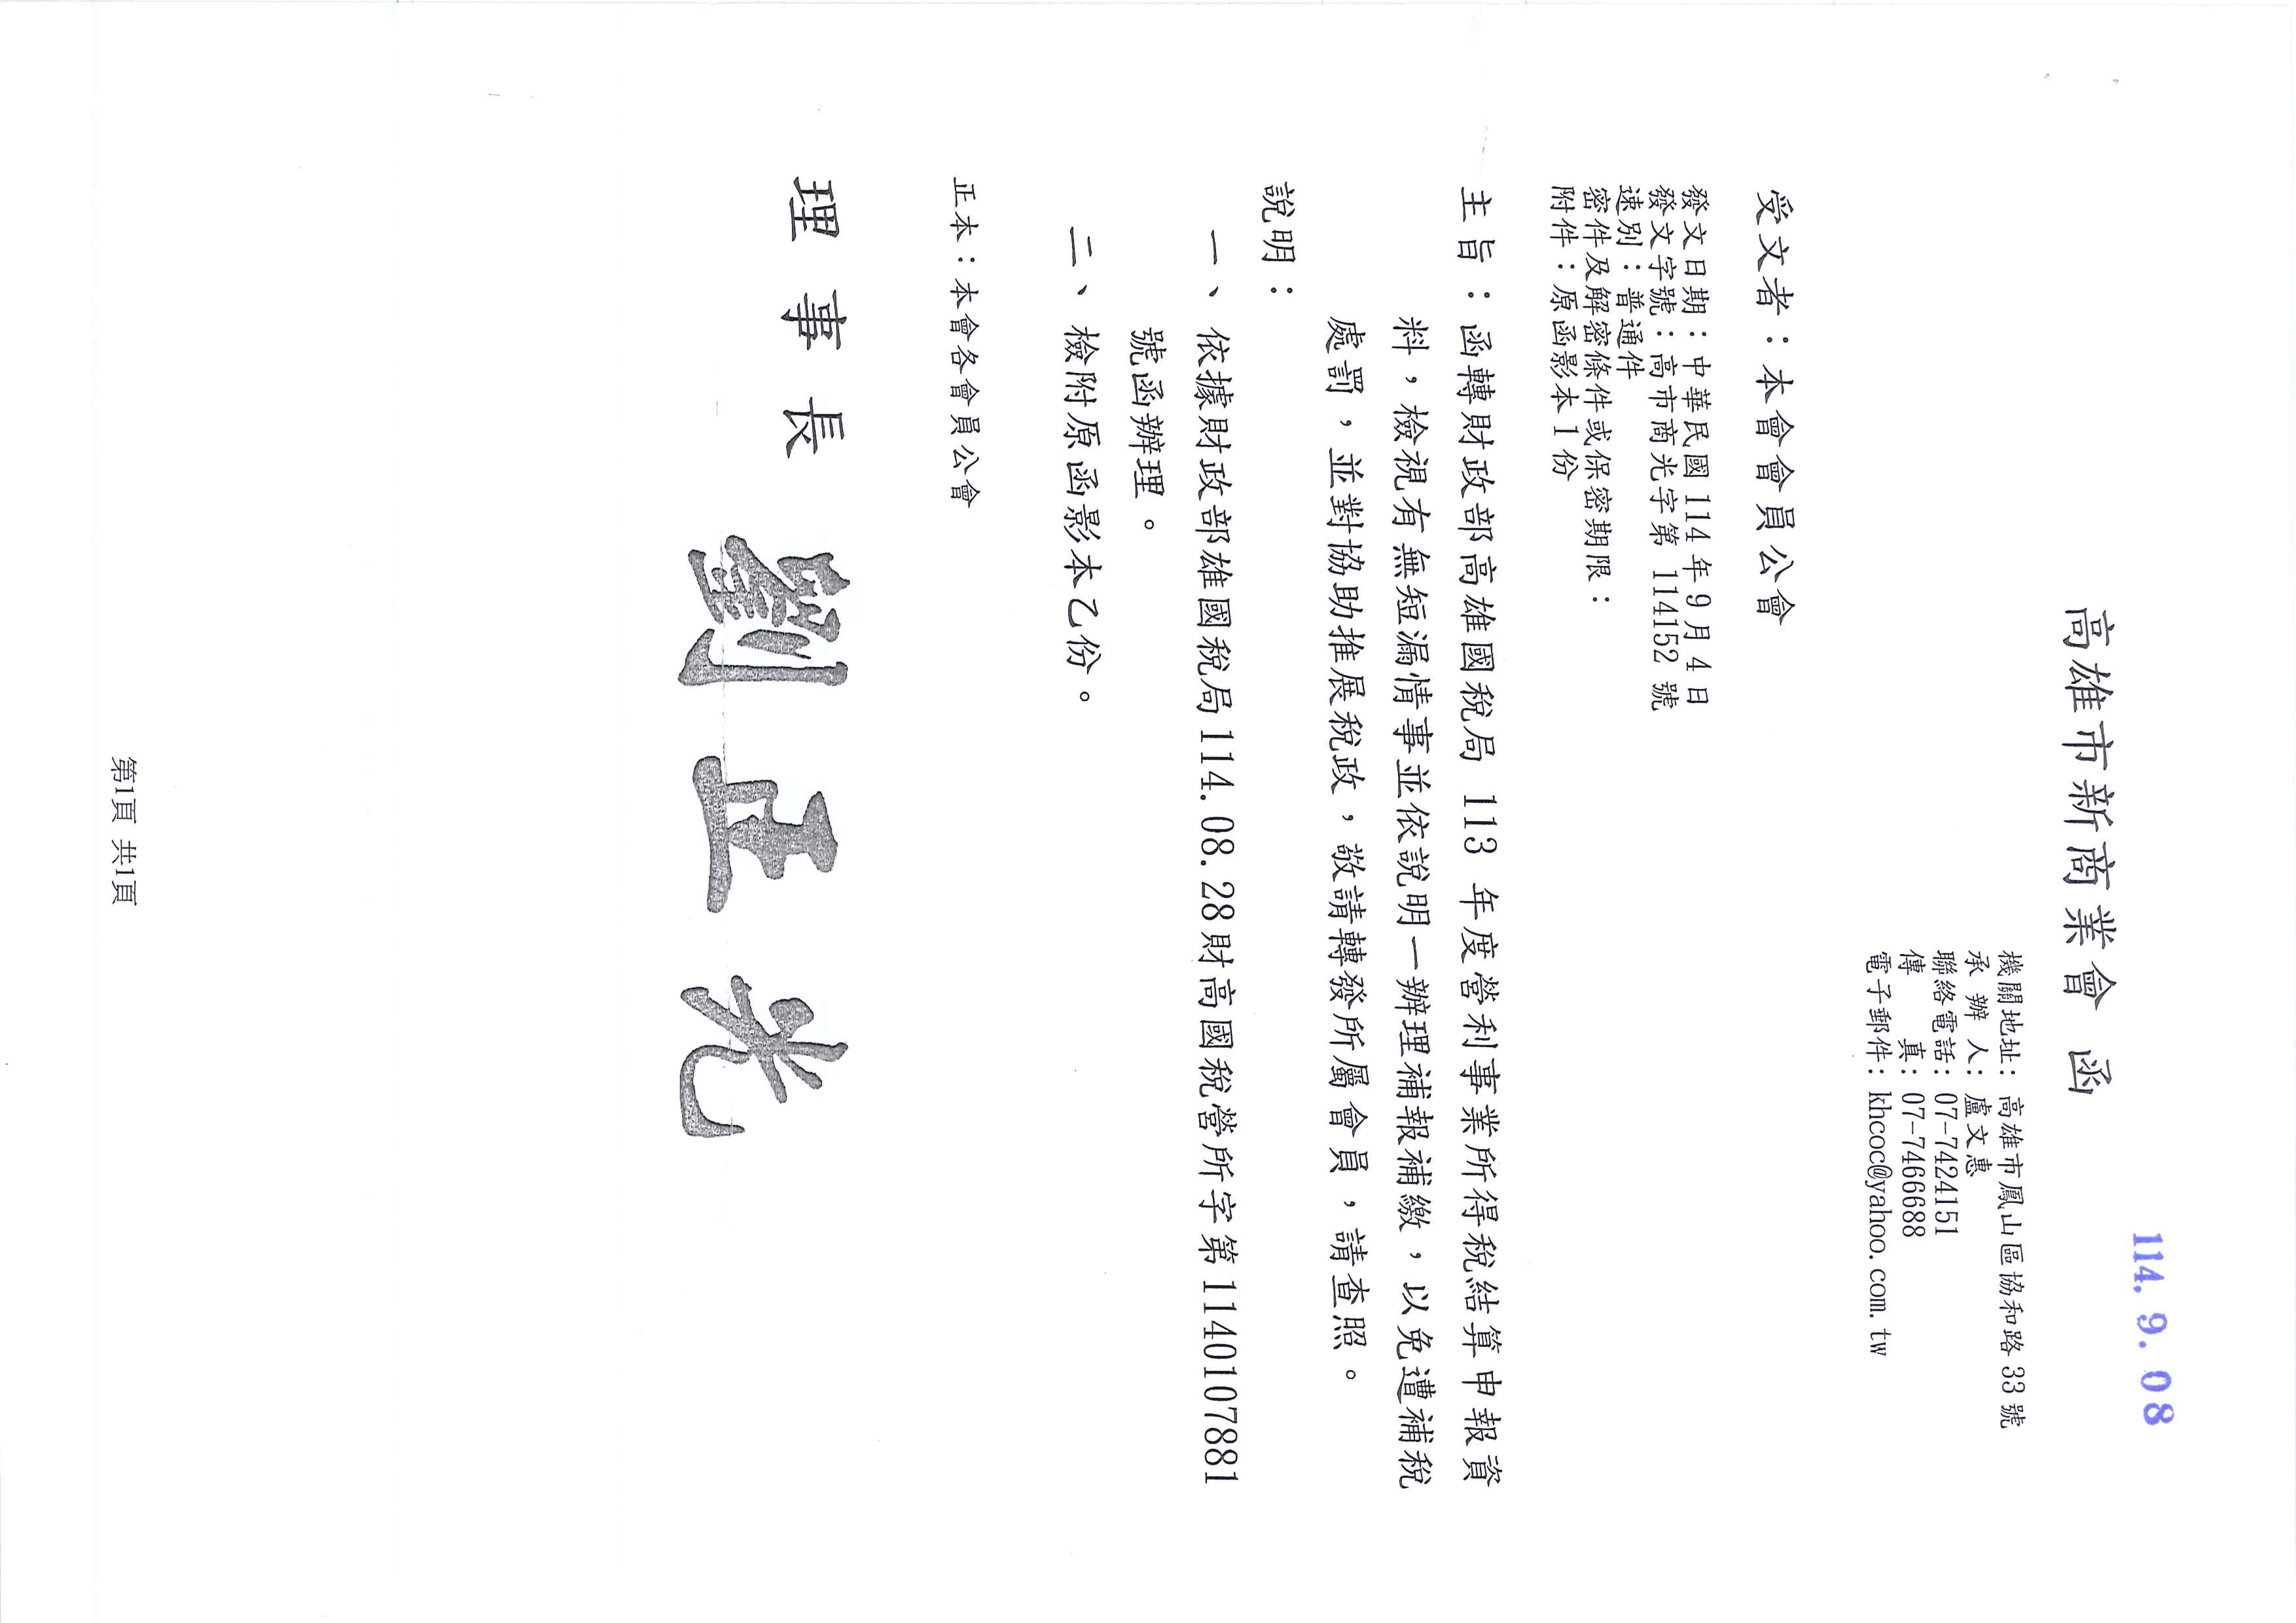 114. 9. 08
高雄市新商業會　函
機關地址：高雄市鳳山區協和路33號
承 辦 人：盧文惠
聯絡電話：07-7424151
傳　　真：07-7466688
電子郵件：khcoc@yahoo.com.tw
受文者：本會會員公會
發文日期：中華民國114年9月4日
發文字號：高市商光字第 114152 號
速別：普通件
密件及解密條件或保密期限：
附件：原函影本1份
主旨：函轉財政部高雄國稅局 113 年度營利事業所得稅結算申報資
料，檢視有無短漏情事並依說明一辦理補報補繳，以免遭補稅
處罰，並對協助推展稅政，敬請轉發所屬會員，請查照。
說明：
一、依據財政部雄國稅局114.08.28財高國稅營所字第1140107881
號函辦理。
二、檢附原函影本乙份。
正本：本會各會員公會
理事長　劉正光
第1頁 共1頁